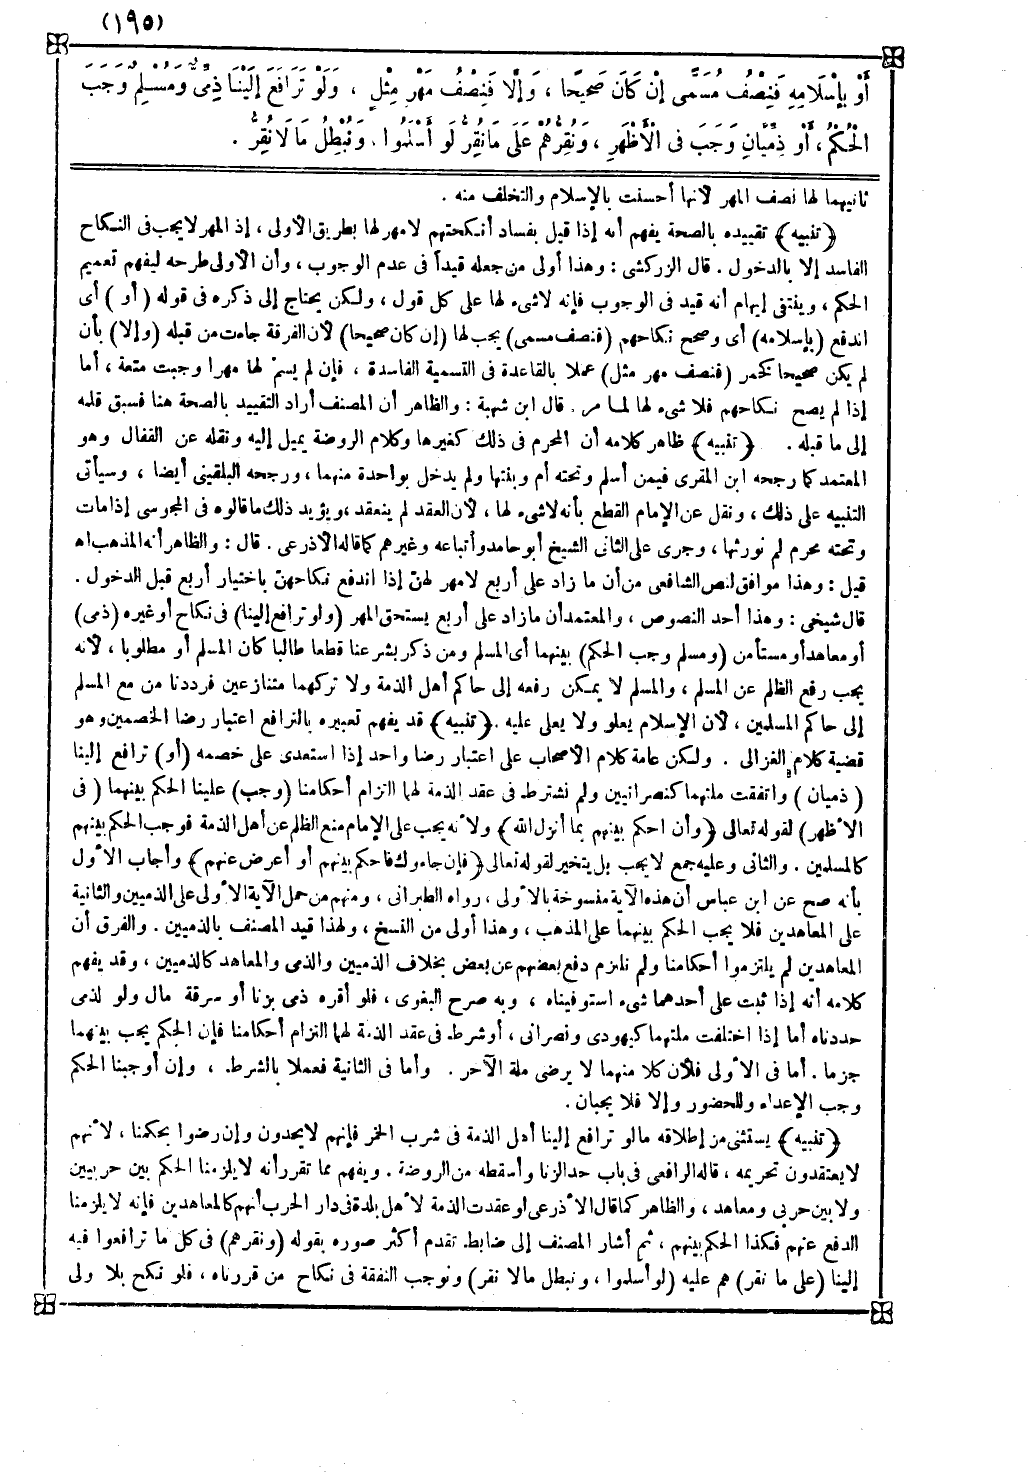 (١٩٥)
أَوْ بِإِسْلَامِهِ فَنِصْفُ مُسَمًّى إِنْ كَانَ صَحِيحًا ، وَإِلَّا فَنِصْفُ مَهْرِ مِثْلٍ ، وَلَوْ تَرَافَعَ إِلَيْنَا ذِمِّىٌّ وَمُسْلِمٌ وَجَبَ
الْحُكْمُ ، أَوْ ذِمِّيَّانِ وَجَبَ فى الْأَظْهَرِ ، وَنُقِرُّهُمْ عَلَى مَا نُقِرُّ لَوْ أَسْلَمُوا . وَنُبْطِلُ مَا لَا نُقِرُّ .
ثانيهما لها نصف المهر لأنها أحسنت بالإسلام والتخلف منه .
﴿ تنبيه ﴾ تقييده بالصحة يفهم أنه إذا قيل بفساد أنكحتهم لامهر لها بطريق الأولى ، إذ المهر لايجب فى النكاح
الفاسد إلا بالدخول . قال الزركشى : وهذا أولى من جعله قيداً فى عدم الوجوب ، وأن الأولى طرحه ليفهم تعميم
الحكم ، وينتفى إيهام أنه قيد فى الوجوب فإنه لاشىء لها على كل قول ، ولكن يحتاج إلى ذكره فى قوله ( أو ) أى
اندفع (بإسلامه) أى وصحح نكاحهم (فنصف مسمى) يجب لها (إن كان صحيحا) لأن الفرقة جاءت من قبله (وإلا) بأن
لم يكن صحيحا كخمر (فنصف مهر مثل) عملا بالقاعدة فى التسمية الفاسدة ، فإن لم يسم لها مهرا وجبت متعة ، أما
إذا لم يصح نكاحهم فلا شىء لها لما مر . قال ابن شهبة : والظاهر أن المصنف أراد التقييد بالصحة هنا فسبق قلمه
إلى ما قبله . ﴿ تنبيه ﴾ ظاهر كلامه أن المحرم فى ذلك كغيرها وكلام الروضة يميل إليه ونقله عن القفال وهو
المعتمد كما رجحه ابن المقرى فيمن أسلم وتحته أم وبنتها ولم يدخل بواحدة منهما ، ورجحه البلقينى أيضا ، وسيأتى
التنبيه على ذلك ، ونقل عن الإمام القطع بأنه لاشىء لها ، لأن العقد لم ينعقد ، ويؤيد ذلك ماقالوه فى المجوسى إذا مات
وتحته محرم لم نورثها ، وجرى على الثانى الشيخ أبو حامد وأتباعه وغيرهم كما قاله الأذرعى . قال : والظاهر أنه المذهب اه
قيل : وهذا موافق لنص الشافعى من أن ما زاد على أربع لامهر لهنّ إذا اندفع نكاحهنّ باختيار أربع قبل الدخول .
قال شيخى : وهذا أحد النصوص ، والمعتمد أن مازاد على أربع يستحق المهر (ولو ترافع إلينا) فى نكاح أو غيره (ذمى)
أو معاهد أو مستأمن (ومسلم وجب الحكم) بينهما أى المسلم ومن ذكر بشرعنا قطعا طالبا كان المسلم أو مطلوبا ، لأنه
يجب رفع الظلم عن المسلم ، والمسلم لا يمكن رفعه إلى حاكم أهل الذمة ولا تركهما متنازعين فرددنا من مع المسلم
إلى حاكم المسلمين ، لأن الإسلام يعلو ولا يعلى عليه . ﴿ تنبيه ﴾ قد يفهم تعبيره بالترافع اعتبار رضا الخصمين وهو
قضية كلام الغزالى . ولكن عامة كلام الأصحاب على اعتبار رضا واحد إذا استعدى على خصمه (أو) ترافع إلينا
( ذميان ) واتفقت ملتهما كنصرانيين ولم نشترط فى عقد الذمة لهما التزام أحكامنا (وجب) علينا الحكم بينهما ( فى
الأظهر) لقوله تعالى ﴿ وأن احكم بينهم بما أنزل الله ﴾ ولأنه يجب على الإمام منع الظلم عن أهل الذمة فوجب الحكم بينهم
كالمسلمين . والثانى وعليه جمع لايجب بل يتخير لقوله تعالى ﴿ فإن جاءوك فاحكم بينهم أو أعرض عنهم ﴾ وأجاب الأول
بأنه صح عن ابن عباس أن هذه الآية منسوخة بالأولى ، رواه الطبرانى ، ومنهم من حمل الآية الأولى على الذميين والثانية
على المعاهدين فلا يجب الحكم بينهما على المذهب ، وهذا أولى من النسخ ، ولهذا قيد المصنف بالذميين . والفرق أن
المعاهدين لم يلتزموا أحكامنا ولم نلتزم دفع بعضهم عن بعض بخلاف الذميين والذمى والمعاهد كالذميين ، وقد يفهم
كلامه أنه إذا ثبت على أحدهما شىء استوفيناه ، وبه صرح البغوى ، فلو أقره ذمى بزنا أو سرقة مال ولو لذمى
حددناه أما إذا اختلفت ملتهما كيهودى ونصرانى ، أو شرط فى عقد الذمة لهما التزام أحكامنا فإن الحكم يجب بينهما
جزما . أما فى الأولى فلأن كلا منهما لا يرضى ملة الآخر . وأما فى الثانية فعملا بالشرط ، وإن أوجبنا الحكم
وجب الإعداء وللحضور وإلا فلا يجبان .
﴿ تنبيه ﴾ يستثنى من إطلاقه مالو ترافع إلينا أهل الذمة فى شرب الخمر فإنهم لايحدون وإن رضوا بحكمنا ، لأنهم
لايعتقدون تحريمه ، قاله الرافعى فى باب حد الزنا وأسقطه من الروضة . ويفهم مما تقرر أنه لايلزمنا الحكم بين حربيين
ولا بين حربى ومعاهد ، والظاهر كما قال الأذرعى لو عقدت الذمة لأهل بلدة فى دار الحرب أنهم كالمعاهدين فإنه لايلزمنا
الدفع عنهم فكذا الحكم بينهم ، ثم أشار المصنف إلى ضابط تقدم أكثر صوره بقوله (ونقرهم) فى كل ما ترافعوا فيه
إلينا (على ما نقر) هم عليه (لو أسلموا ، ونبطل مالا نقر) ونوجب النفقة فى نكاح من قررناه ، فلو نكح بلا ولى